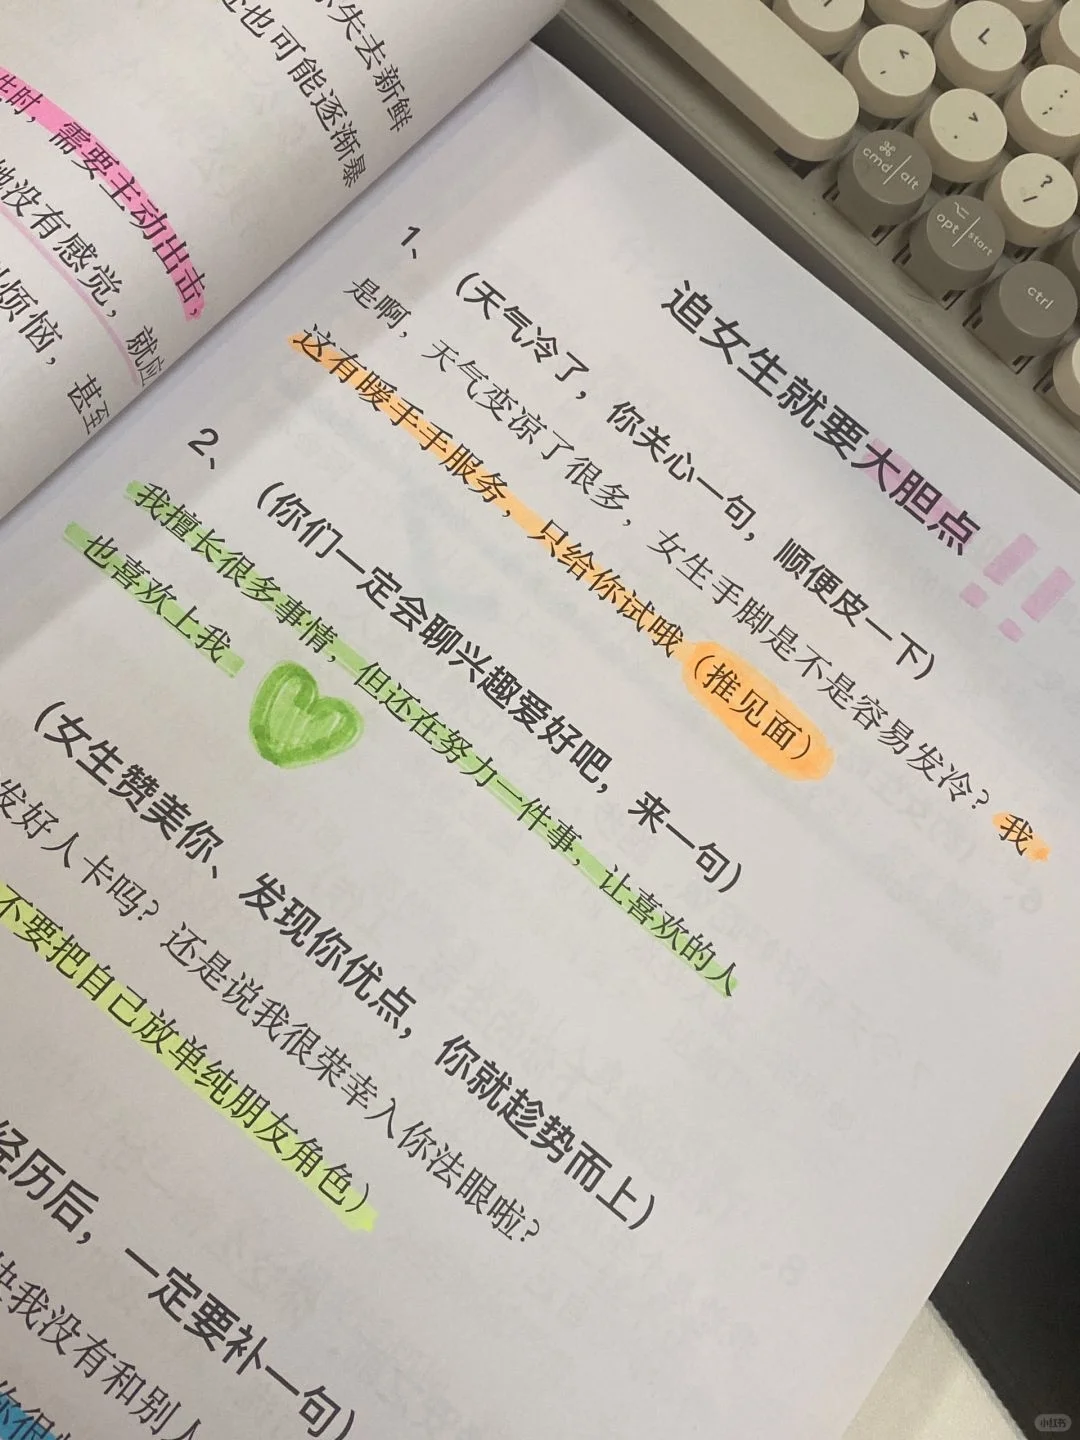 失去新鲜
也可能逐渐暴
时，需要主动出击，
没有感觉，就应
烦恼，甚至
追女生就要大胆点!!
1、
（天气冷了，你关心一句，顺便皮一下）
是啊，天气变凉了很多，女生手脚是不是容易发冷？我
这有暖手手服务，只给你试哦（推见面）
2、
（你们一定会聊兴趣爱好吧，来一句）
我擅长很多事情，但还在努力一件事，让喜欢的人
也喜欢上我
（女生赞美你、发现你优点，你就趁势而上）
发好人卡吗？还是说我很荣幸入你法眼啦？
不要把自己放单纯朋友角色）
经历后，一定要补一句）
我没有和别人
你很
L
<
,
>
.
:
;
?
/
⌘
cmd alt
⌥
opt start
ctrl
小红书